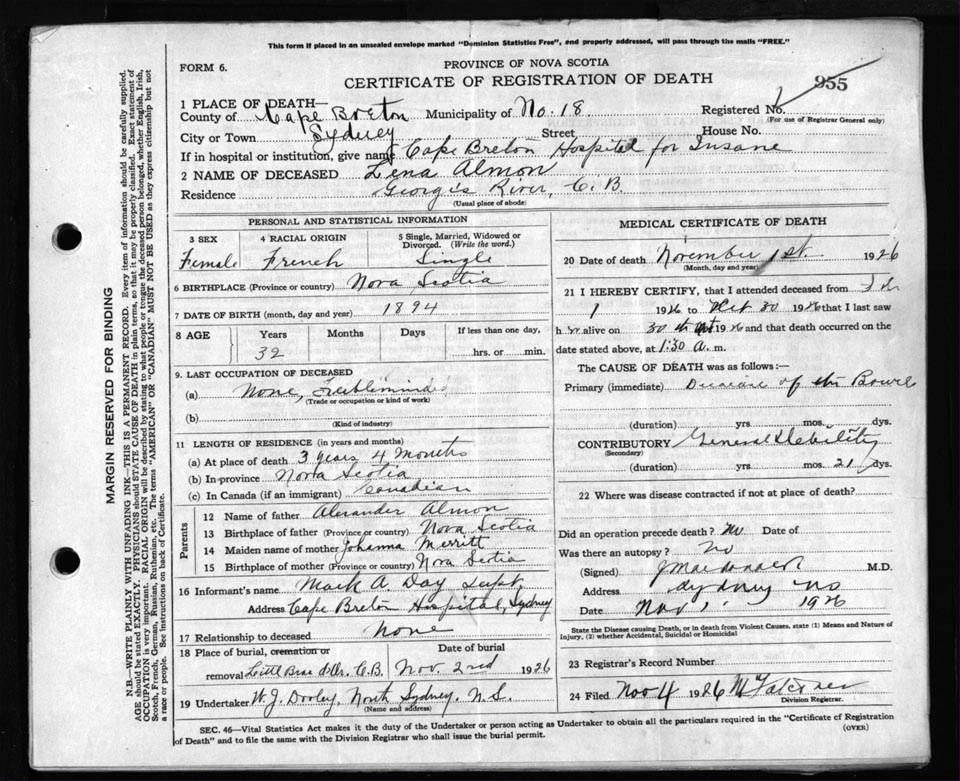 This form if placed in an unsealed envelope marked "Dominion Statistics Free", and properly addressed, will pass through the mails "FREE."
FORM 6.
PROVINCE OF NOVA SCOTIA
CERTIFICATE OF REGISTRATION OF DEATH
955
1 PLACE OF DEATH—
County of Cape Breton Municipality of No. 18 Registered No.
(For use of Registrar General only)
City or Town Sydney Street House No.
If in hospital or institution, give name Cape Breton Hospital for Insane
2 NAME OF DECEASED Lena Almon
Residence Georges River, C.B.
(Usual place of abode)
PERSONAL AND STATISTICAL INFORMATION
3 SEX 4 RACIAL ORIGIN 5 Single, Married, Widowed or Divorced. (Write the word.)
Female French Single
6 BIRTHPLACE (Province or country) Nova Scotia
7 DATE OF BIRTH (month, day and year) 1894
8 AGE Years Months Days If less than one day,
32 hrs. or min.
9. LAST OCCUPATION OF DECEASED
(a) None, Feebleminded
(Trade or occupation or kind of work)
(b)
(Kind of industry)
11 LENGTH OF RESIDENCE (in years and months)
(a) At place of death 3 years 4 Months
(b) In province Nova Scotia
(c) In Canada (if an immigrant) Canadian
Parents
12 Name of father Alexander Almon
13 Birthplace of father (Province or country) Nova Scotia
14 Maiden name of mother Johanna Merritt
15 Birthplace of mother (Province or country) Nova Scotia
16 Informant's name Mack A Day Supt
Address Cape Breton Hospital, Sydney
17 Relationship to deceased None
18 Place of burial, cremation or removal Date of burial
Little Bras d'Or. C.B. Nov. 2nd 1926
19 Undertaker W. J. Dooley, North Sydney, N.S.
(Name and address)
MEDICAL CERTIFICATE OF DEATH
20 Date of death November 1st. 1926
(Month, day and year)
21 I HEREBY CERTIFY, that I attended deceased from
1 1926 to Oct 30 1926 that I last saw
h er alive on 30 th Oct 1926 and that death occurred on
date stated above, at 1:30 a. m.
The CAUSE OF DEATH was as follows:—
Primary (immediate) Disease of the Bowel
(duration) yrs. mos. dys.
CONTRIBUTORY General Debility
(Secondary)
(duration) yrs. mos. 21 dys.
22 Where was disease contracted if not at place of death?
Did an operation precede death? No Date of
Was there an autopsy? No
(Signed) J Macdonald M.D.
Address Sydney NS
Date Nov 1 1926
State the Disease causing Death, or in death from Violent Causes, state (1) Means and Nature of
Injury, (2) whether Accidental, Suicidal or Homicidal
23 Registrar's Record Number
24 Filed Nov 4 1926
Division Registrar.
SEC. 46—Vital Statistics Act makes it the duty of the Undertaker or person acting as Undertaker to obtain all the particulars required in the "Certificate of Registration
of Death" and to file the same with the Division Registrar who shall issue the burial permit.
(OVER)
MARGIN RESERVED FOR BINDING
N.B.—WRITE PLAINLY WITH UNFADING INK—THIS IS A PERMANENT RECORD. Every item of information should be carefully supplied.
AGE should be stated EXACTLY. PHYSICIANS should STATE CAUSE OF DEATH in plain terms, so that it may be properly classified. Exact statement of
OCCUPATION is very important. RACIAL ORIGIN will be described by stating to what people or tongue the deceased person belonged, whether English, Irish,
Scotch, French, German, Russian, Ruthenian, etc. The terms "AMERICAN" OR "CANADIAN" MUST NOT BE USED as they express citizenship but not
a race or people. See instructions on back of Certificate.